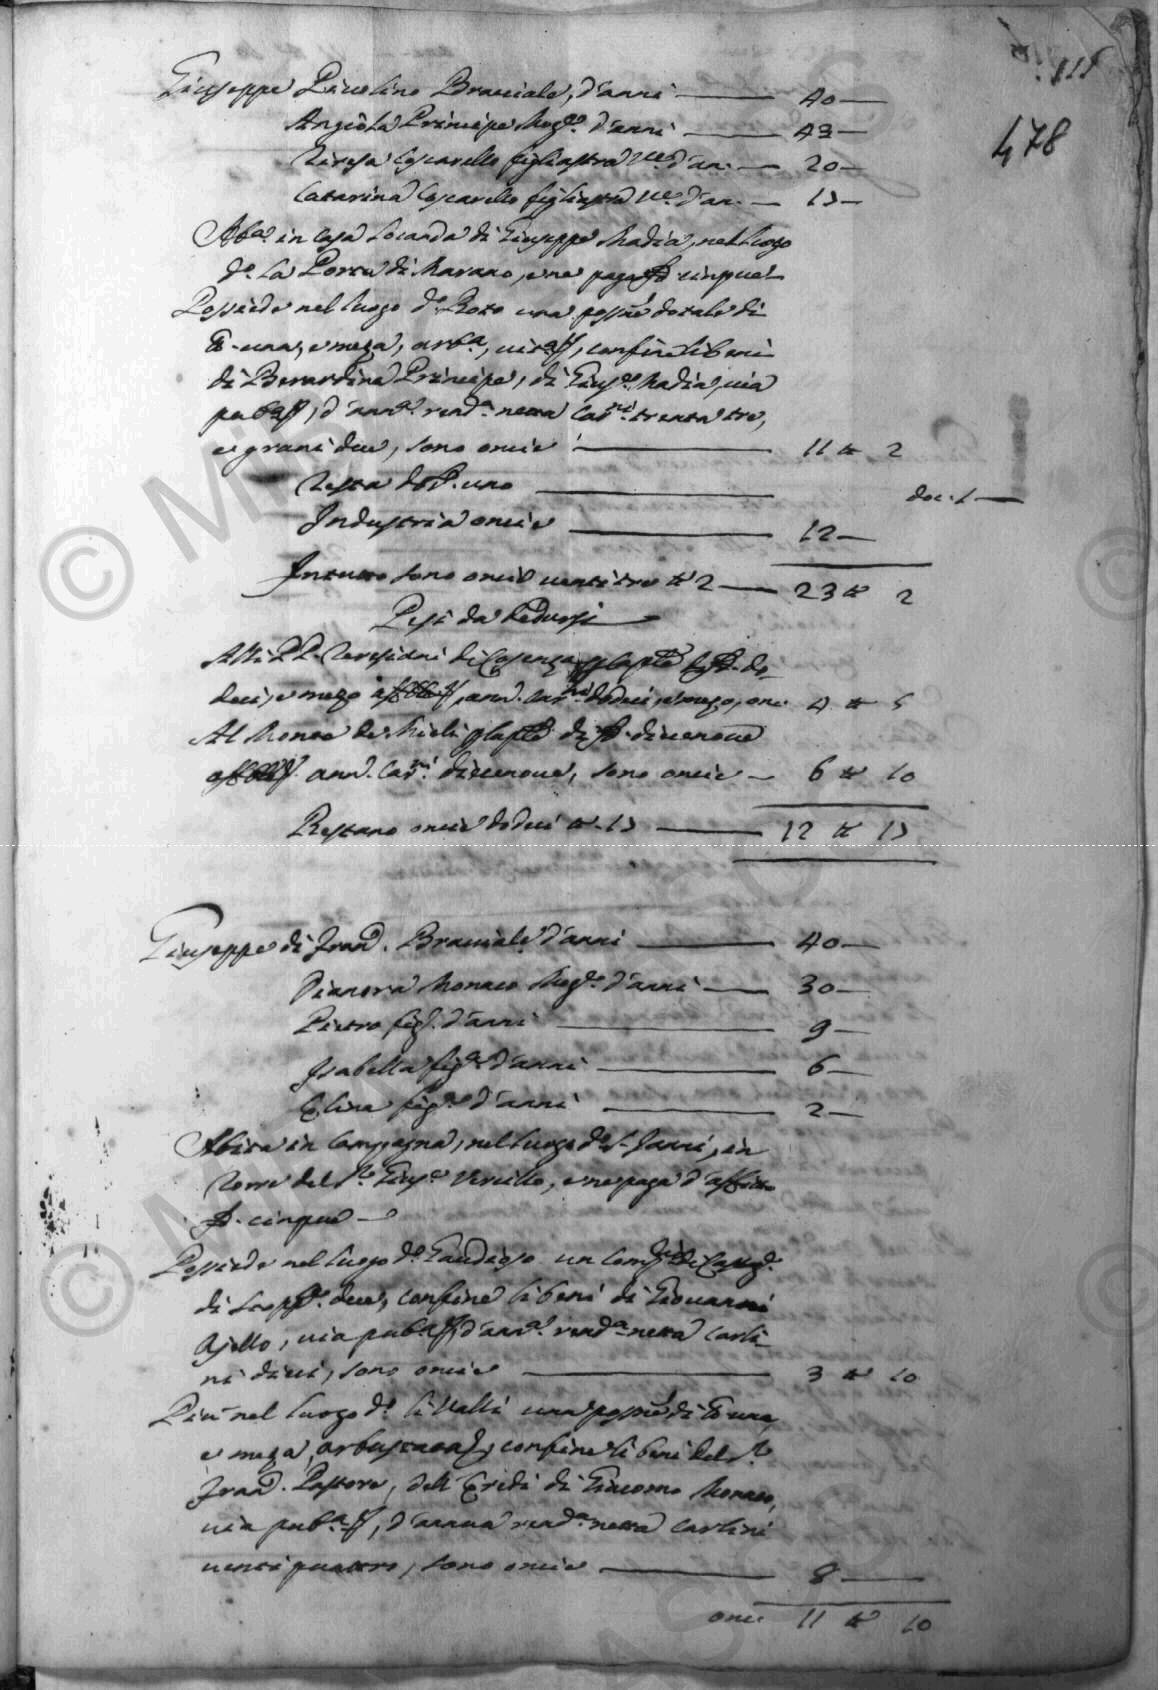 115
478
Giuseppe Picolino Bracciale, d'anni — 40 —
Angiola Principe Mog.e d'anni — 43 —
Teresa Coscarello figliastra d'an. — 20 —
Catarina Coscarello figliastra d'an. — 13 —
Ab.a in Casa locanda di Giuseppe Madia, nel luogo
d.o la Porta di Marano, e ne paga cinque
Possiede nel luogo d.o Roto una poss.ne dotale di
una, e meza, arb.a, confine li beni
di Berardina Principe, di Gius.e Madia, via
pub.a, d'ann.a rend.a netta Car.ni trenta tre,
e grani due, sono oncie — 11 tt 2
Testa uno — doc. 1 —
Industria oncie — 12 —
In tutto sono oncie venti tre tt 2 — 23 tt 2
Pesi da dedursi
Alli PP. Teresiani di Cosenza do-
deci, e mezo ann. Car.ni dodeci, e mezo, onc. 4 tt 5
Al Monte de Mieli di diecenove
ann. Car.ni diecenove, sono oncie — 6 tt 10
Restano oncie dodeci tt. 13 — 12 tt 13
Giuseppe di Fran.o Bracciale d'anni — 40 —
Dianora Monaco Mog.e d'anni — 30 —
Pietro fig.o d'anni — 9 —
Isabella fig.a d'anni — 6 —
Elisa fig.a d'anni — 2 —
Abita in Campagna, nel luogo d.o S. Janni, in
Torre del S.r Gius.e Vercillo, e ne paga d'affitto
cinque —
Possiede nel luogo d.o Gaudioso un di
di due, confine li beni di Giovanni
Ajello, via pub.a, d'ann.a rend.a netta Carli-
ni dieci, sono oncie — 3 tt 10
Più nel luogo d.o li Valli una poss.ne di una,
e meza, arbustata, confine li beni del S.r
Fran.o Pastore, dell'Eredi di Giacomo Monaco,
via pub.a, d'annua rend.a netta Carlini
venti quattro, sono oncie — 8 —
onc. 11 tt 10